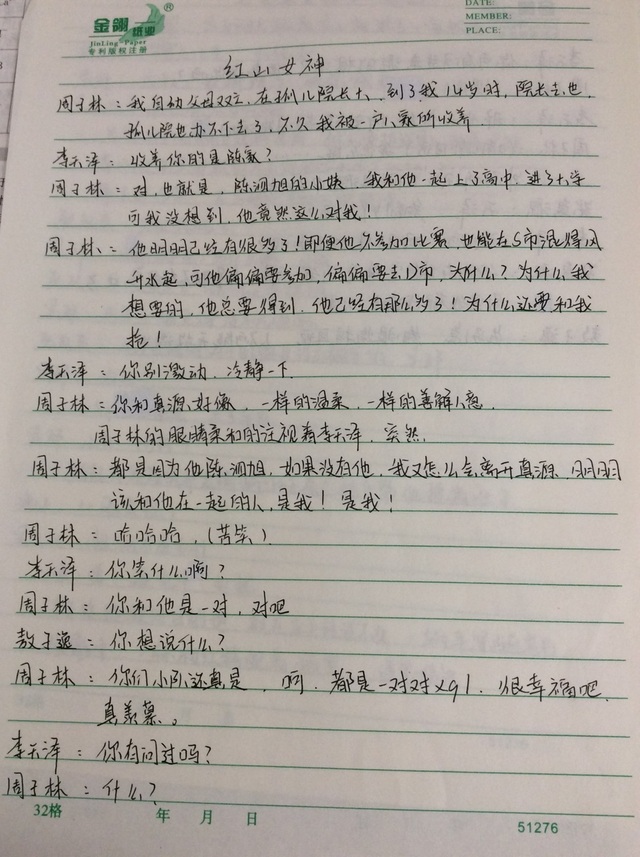 金翎纸业®
JinLing-Paper
专利版权注册
DATE:
MEMBER:
PLACE:
红山女神
周子林：我自幼父母双亡，在孤儿院长大，到了我14岁时，院长去世
孤儿院也办不下去了，不久我被一户人家所收养
李天泽：收养你的是陈家？
周子林：对，也就是，陈泗旭的小姨，我和他一起上了高中，进了大学
可我没想到，他竟然这么对我！
周子林：他明明已经有很多了！即便他不参加比赛，也能在S市混得风
升水起，可他偏偏要参加，偏偏要去D市，为什么？为什么我
想要的，他总要得到，他已经有那么多了！为什么还要和我
抢！
李天泽：你别激动，冷静一下
周子林：你和真源好像，一样的温柔，一样的善解人意
周子林的眼睛柔和的注视着李天泽，突然
周子林：都是因为他陈泗旭，如果没有他，我又怎么会离开真源，明明
该和他在一起的人，是我！是我！
周子林：哈哈哈，（苦笑）
李天泽：你笑什么啊？
周子林：你和他是一对，对吧
敖子逸：你想说什么？
周子林：你们小队还真是，呵，都是一对对 很幸福吧，
真羡慕。
李天泽：你有问过吗？
周子林：什么？
32格
年 月 日
51276